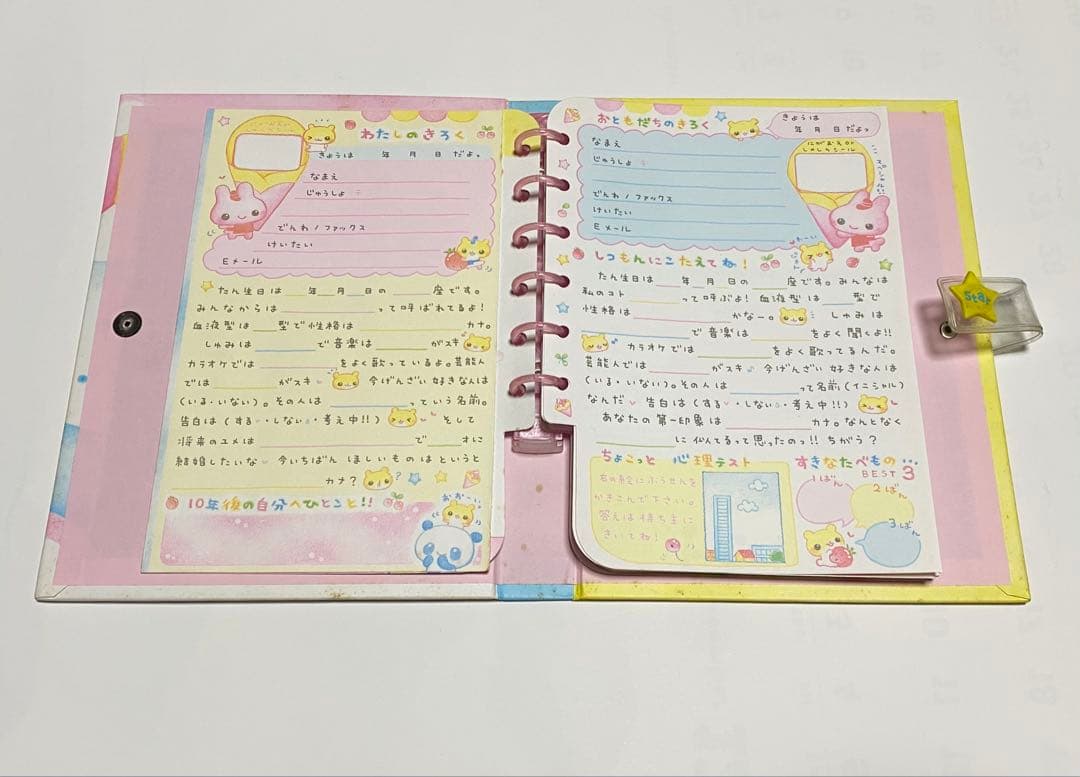 わたしのきろく
きょうは 年 月 日 だよっ
なまえ
じゅうしょ 〒
でんわ/ファックス
けいたい
Eメール
たん生日は 年 月 日の 座です。
みんなからは って呼ばれてるよ!
血液型は 型で性格は カナ。
しゅみは で音楽は がスキ
カラオケでは をよく歌っているよ。芸能人
では がスキ 今げんざい好きな人は
(いる・いない)。その人は っていう名前。
告白は(する・しない・考え中!!) そして
将来のユメは で オに
結婚したいな 今いちばん ほしいものはというと
カナ?
10年後の自分へひとこと!!
おおーい
おともだちのきろく
きょうは
年 月 日だよっ
なまえ
じゅうしょ 〒
でんわ/ファックス
けいたい
Eメール
にがおえor
しゃしんシール
しつもんにこたえてね!
たん生日は 年 月 日の 座です。みんなは
私のコト って呼ぶよ! 血液型は 型で
性格は かなー。 しゅみは
で音楽は をよく聞くよ!!
カラオケでは をよく歌ってるんだ。
芸能人では がスキ 今げんざい 好きな人は
(いる・いない)。その人は って名前(イニシャル)
なんだ 告白は(する・しない・考え中!!)
あなたの第一印象は カナ。なんとなく
に似てるって思ったのっ!! ちがう?
ちょこっと 心理テスト
右の絵にふうせんを
かきこんで下さい。
答えは持ち主に
きいてね!
すきなたべもの
BEST3
1ばん
2ばん
3ばん
Star